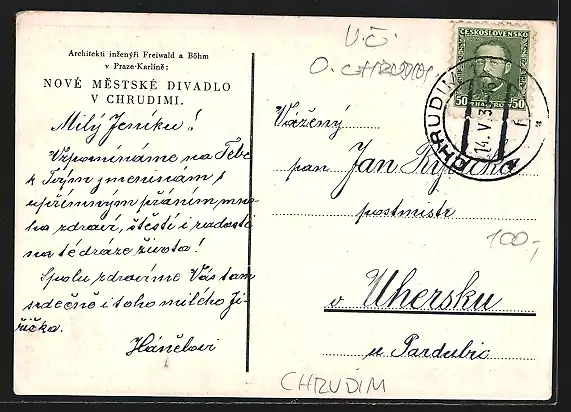 Architekti inženýři Freiwald a Böhm
v Praze-Karlíně:
NOVÉ MĚSTSKÉ DIVADLO
V CHRUDIMI.
Milý Jeníku!
Vzpomínáme na Tebe
k Tvým jmeninám s
upřímným přáním mno-
ha zdraví, štěstí i radosti
na té dráze života!
Spolu zdravíme Vás tam
srdečně i toho milého Ji-
říčka.
Hánělovi
V.Č.
O. CHRUDIM
ČESKOSLOVENSKO
50 HALÉŘŮ 50
CHRUDIM
14.V.3
Vážený
pan Jan Rybička
postmistr
100,-
v Uhersku
u Pardubic
CHRUDIM